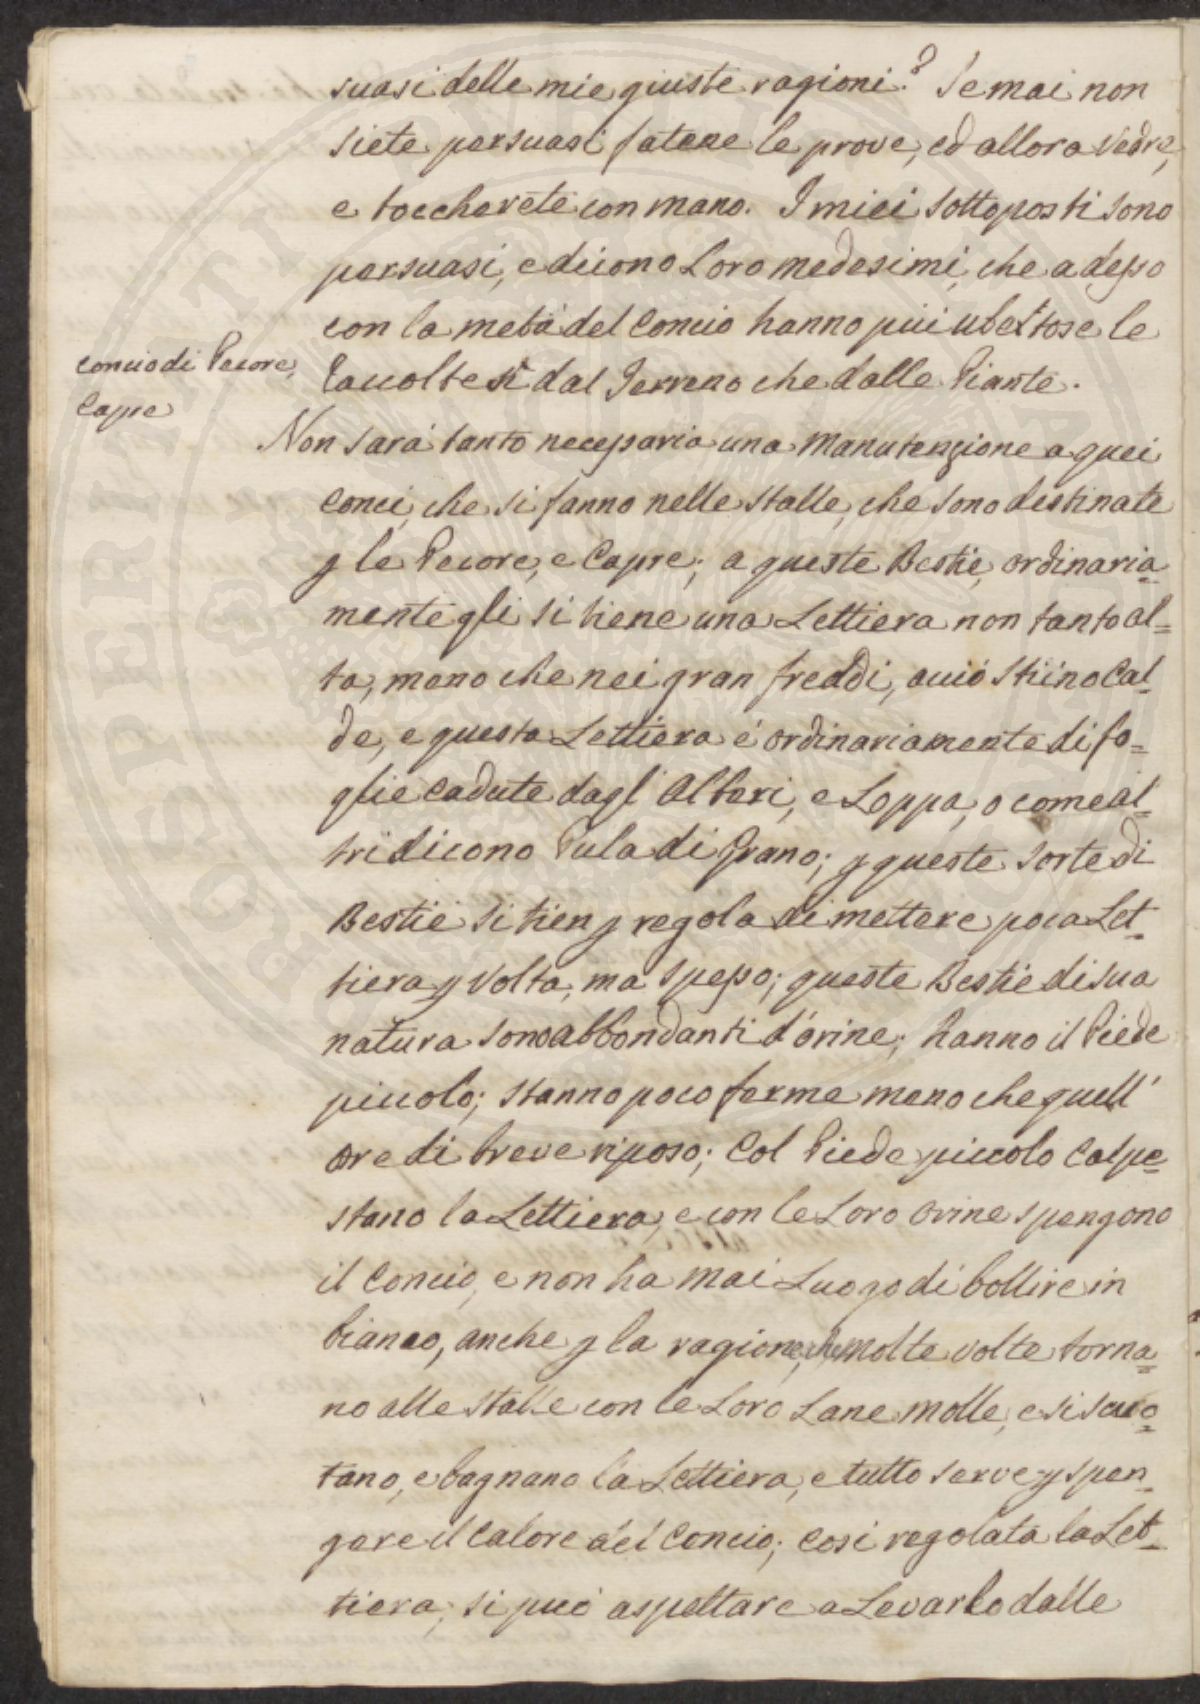 suasi delle mie giuste ragioni? Se mai non
siete persuasi fatene le prove, ed allora vedre,
e toccherete con mano. I miei sottoposti sono
persuasi, e dicono Loro medesimi, che adesso
con la metà del Concio hanno più ubertose le
concio di Pecore,
Capre
Raccolte sì dal Terreno che dalle Piante.
Non sarà tanto necessaria una manutenzione a quei
Conci, che si fanno nelle stalle, che sono destinate
p le Pecore, e Capre; a queste Bestie, ordinaria=
mente gli si tiene una Lettiera non tanto al=
ta, meno che nei gran freddi, acciò stiino Cal=
de, e questa Lettiera é ordinariamente di fo=
glie cadute dagl' Alberi, e Loppa, o come al=
tri dicono Pula di Grano; p queste sorte di
Bestie si tien p regola di mettere poca Let=
tiera p volta, ma spesso; queste Bestie di sua
natura sono abbondanti d'orine; hanno il Piede
piccolo; stanno poco ferme meno che quell'
ore di breve riposo; Col Piede piccolo Calpe=
stano la Lettiera, e con le Loro orine spengono
il Concio, e non ha mai Luogo di bollire in
bianco, anche p la ragione, che molte volte torna=
no alle stalle con le Loro Lane molle, e si scuo=
tano, e bagnano la Lettiera, e tutto serve p spen=
gere il Calore del Concio; Così regolata la Let=
tiera, si può aspettare a Levarlo dalle